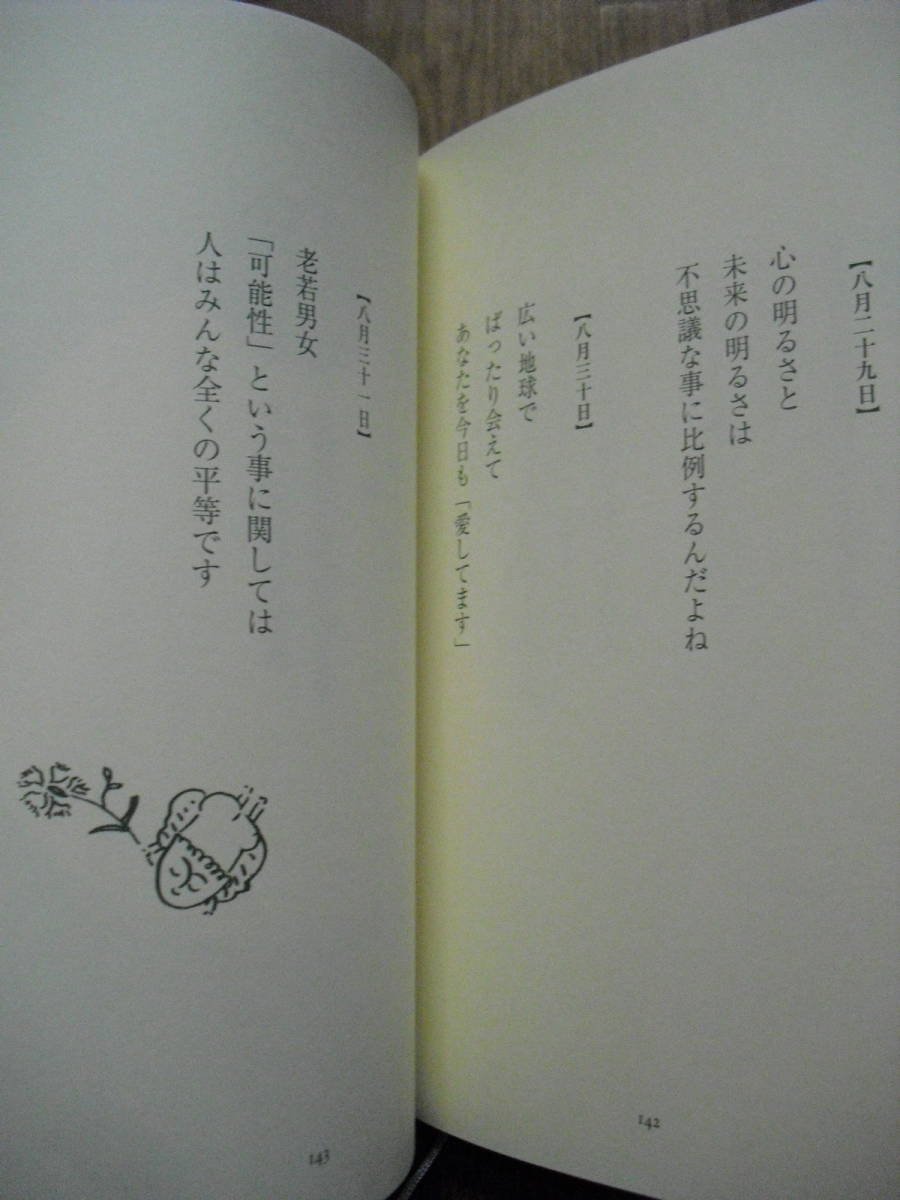 【八月二十九日】
心の明るさと
未来の明るさは
不思議な事に比例するんだよね
【八月三十日】
広い地球で
ばったり会えて
あなたを今日も「愛してます」
142
【八月三十一日】
老若男女
「可能性」という事に関しては
人はみんな全くの平等です
143